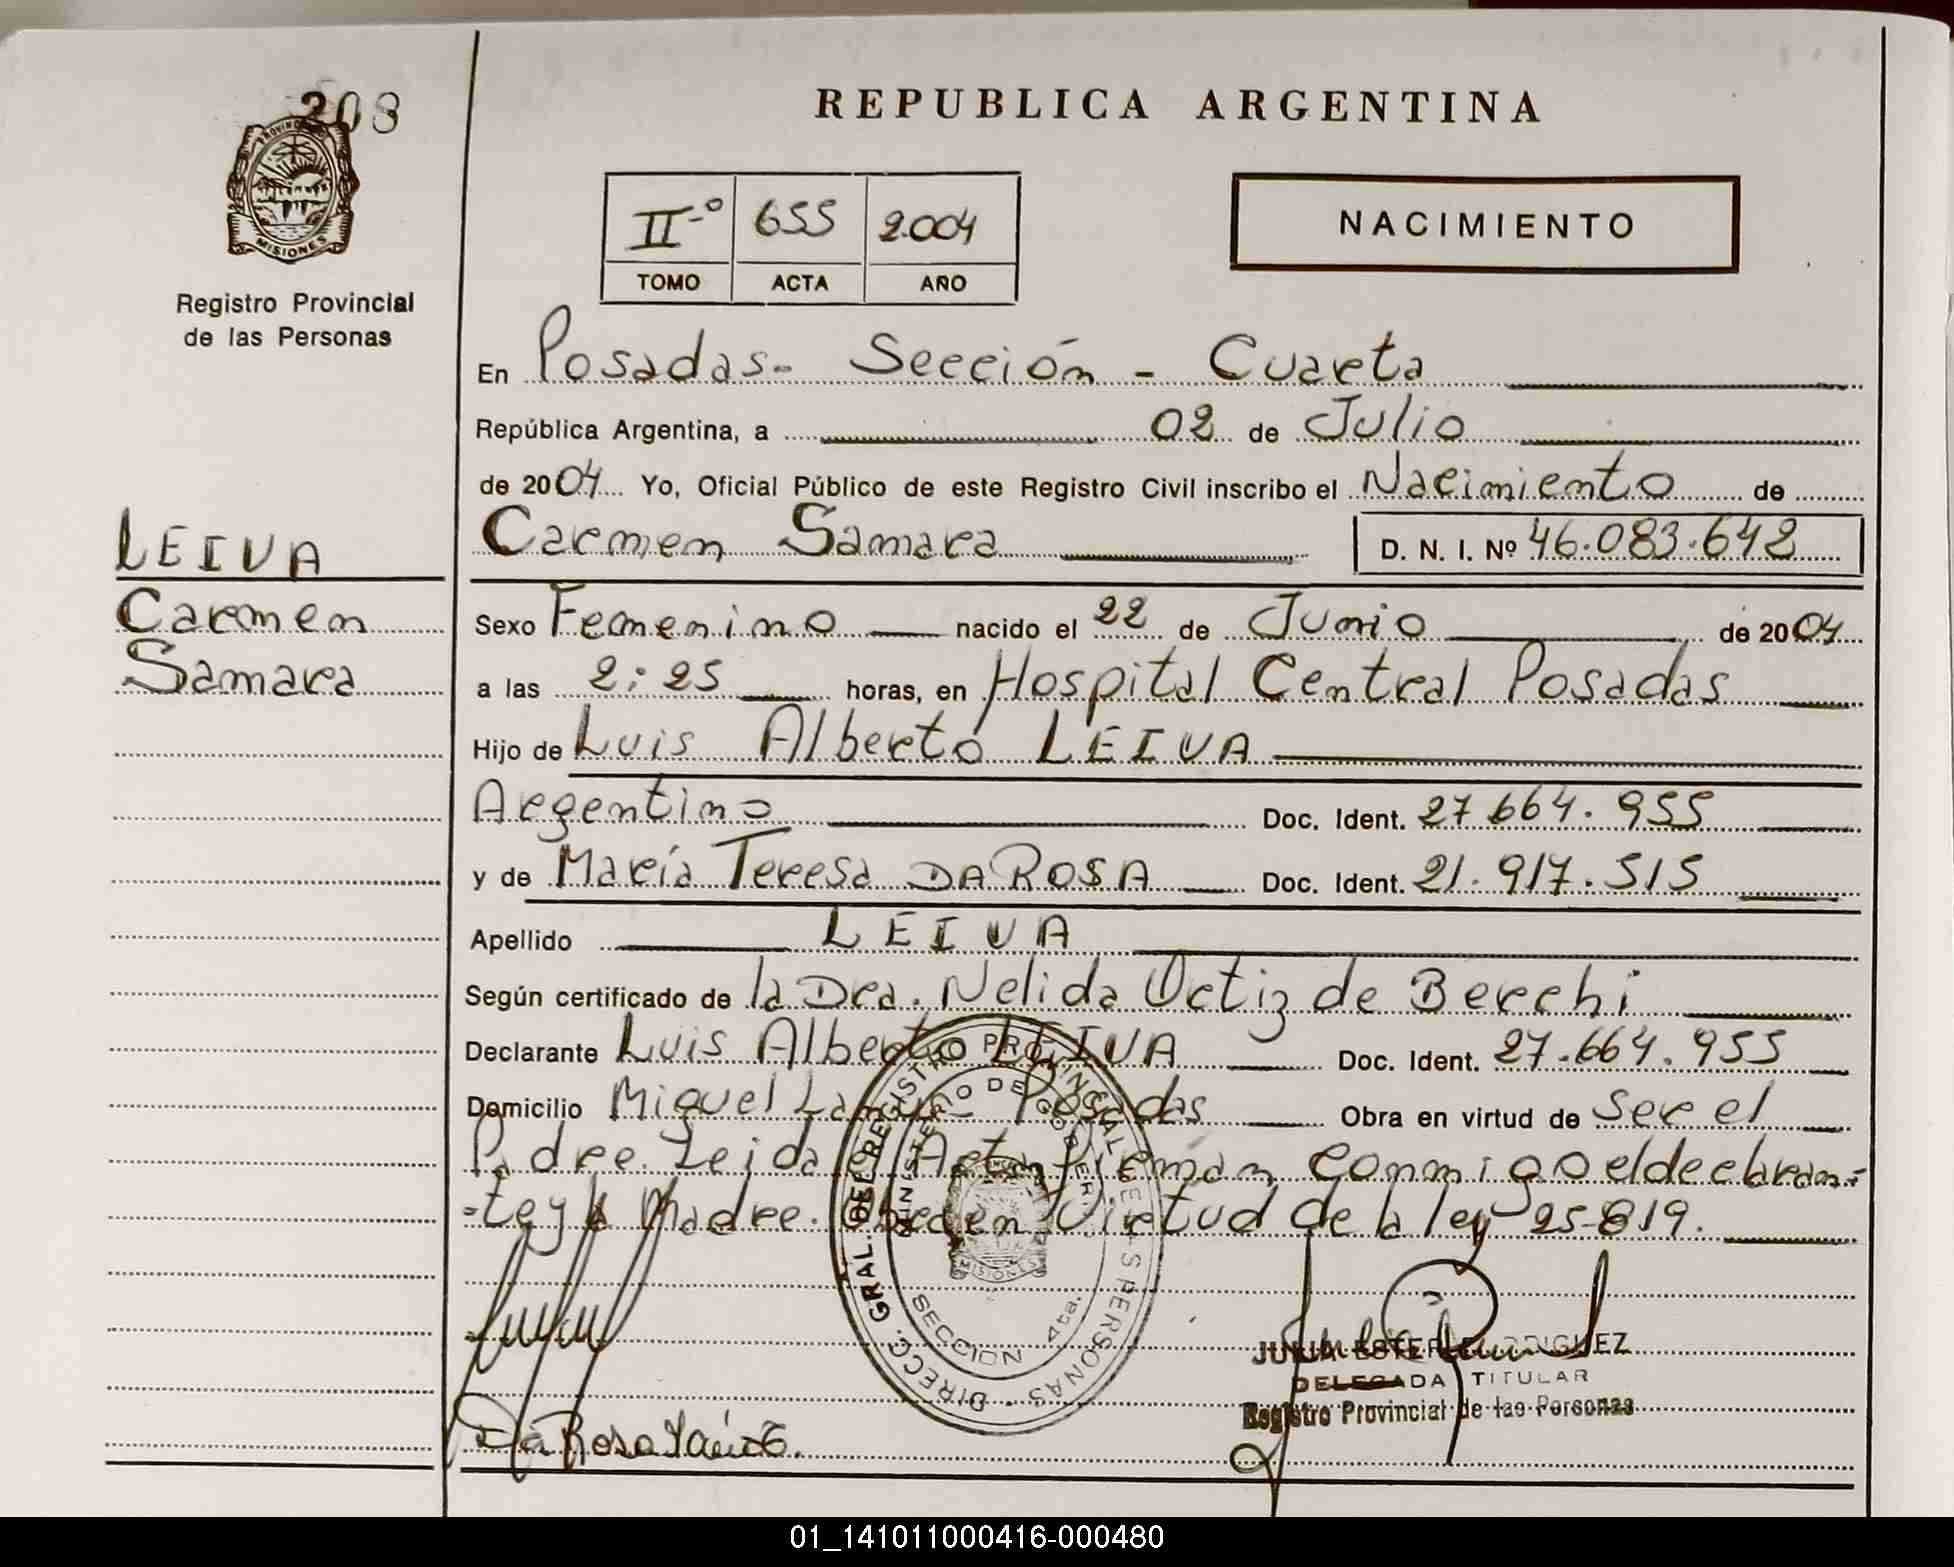 208
PROVINCIA
MISIONES
Registro Provincial
de las Personas
REPUBLICA ARGENTINA
II-º 655 2.004
TOMO ACTA AÑO
NACIMIENTO
En Posadas- Sección - Cuarta
República Argentina, a 02 de Julio
de 2004 Yo, Oficial Público de este Registro Civil inscribo el Nacimiento de
Carmen Samara D. N. I. Nº 46.083.642
LEIVA
Carmen
Samara
Sexo Femenino nacido el 22 de Junio de 2004
a las 2:25 horas, en Hospital Central Posadas
Hijo de Luis Alberto LEIVA
Argentino Doc. Ident. 27.664.955
y de María Teresa DA ROSA Doc. Ident. 21.917.515
Apellido LEIVA
Según certificado de la Dra. Nelida Ortiz de Berchi
Declarante Luis Alberto LEIVA Doc. Ident. 27.664.955
Domicilio Miguel Posadas Obra en virtud de ser el
Padre. Leida Acta Firman conmigo el declaran-
-te y la Madre. en Virtud de la ley 25-819.
DIRECC. GRAL. DEL REGISTRO PROVINCIAL DE LAS PERSONAS
MINISTERIO DE GOBIERNO
MISIONES
SECCION 4ta.
JULIA ESTER RODRIGUEZ
DELEGADA TITULAR
Registro Provincial de las Personas
Da Rosa
01_141011000416-000480